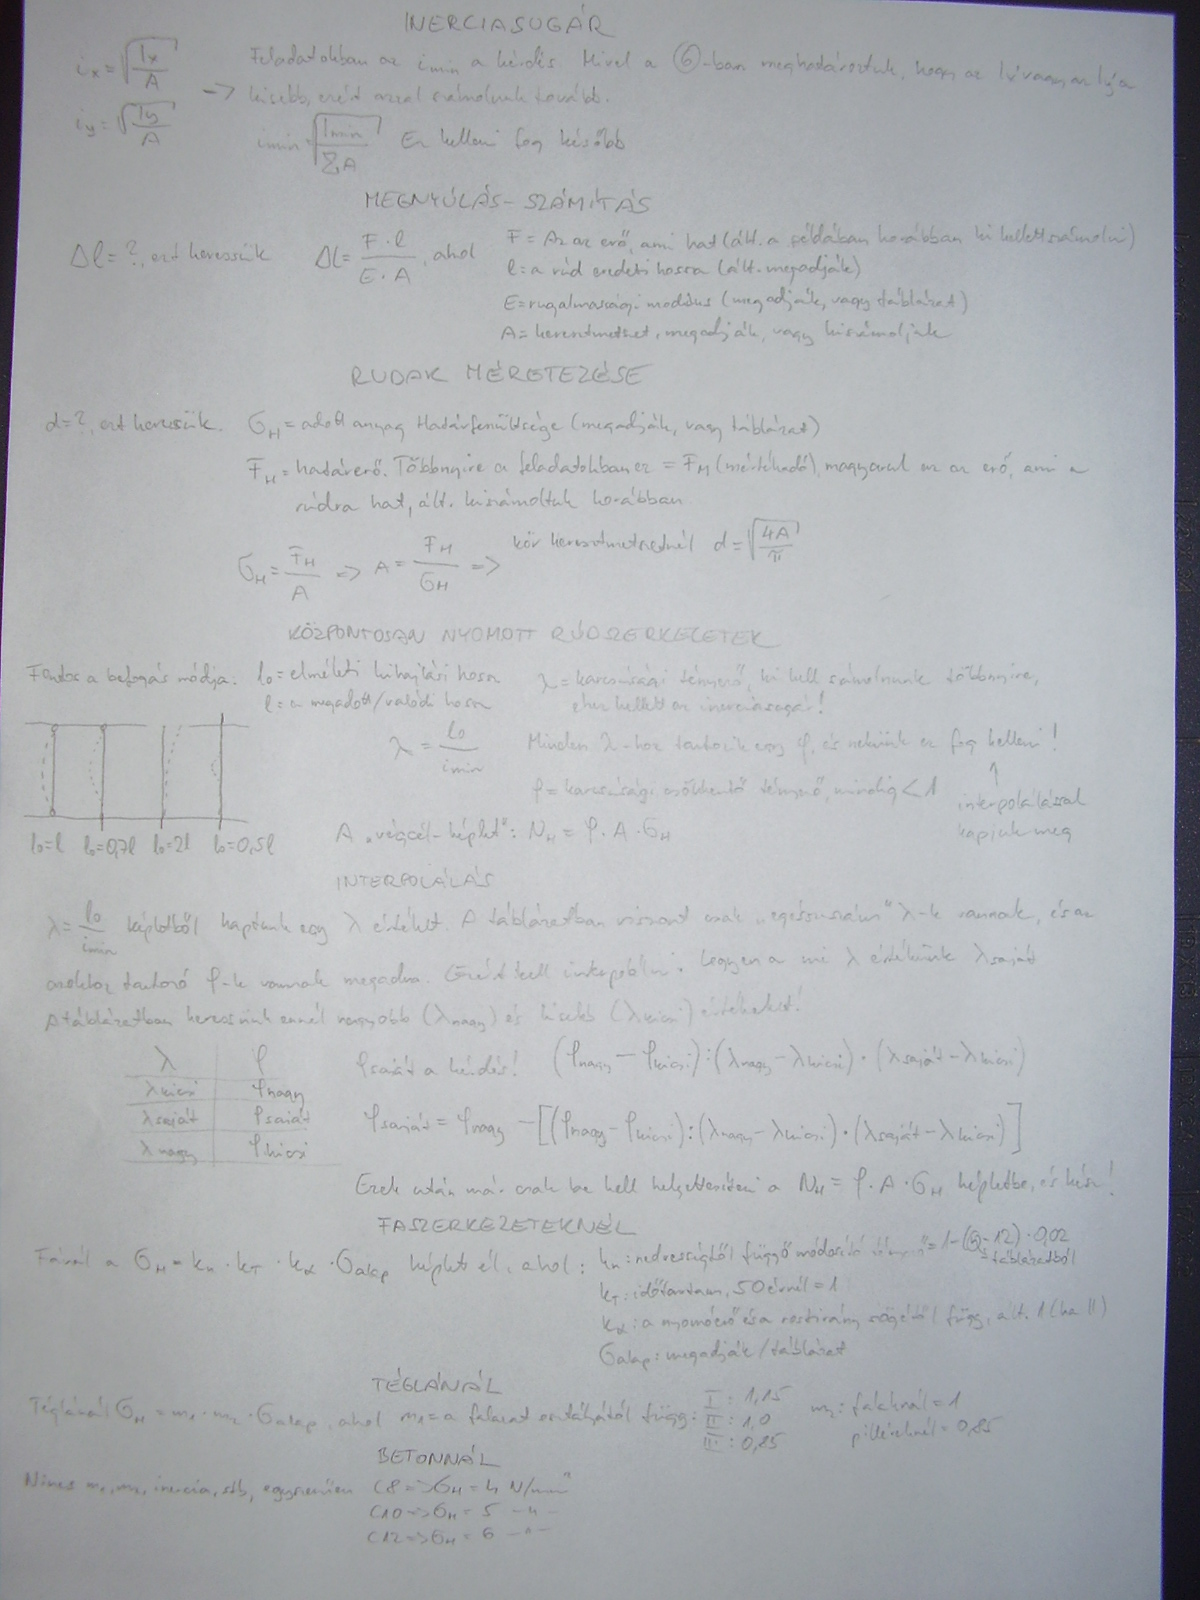 INERCIASUGÁR
ix = √(Ix/A)
iy = √(Iy/A)
Feladatokban az imin a kérdés. Mivel a ⑥-ban meghatároztuk, hogy az Ix vagy az Iy a
-> kisebb, ezért azzal számolunk tovább.
imin = √(Imin/ΣA) Ez kelleni fog később
MEGNYÚLÁS-SZÁMÍTÁS
Δl = ?, ezt keressük Δl = F·l/E·A, ahol
F = Az az erő, ami hat (ált. a példában korábban ki kellett számolni)
l = a rúd eredeti hossza (ált. megadják)
E = rugalmassági modulus (megadják, vagy táblázat)
A = keresztmetszet, megadják, vagy kiszámoljuk
RUDAK MÉRETEZÉSE
d = ?, ezt keressük. σH = adott anyag Határfeszültsége (megadják, vagy táblázat)
FH = határerő. Többnyire a feladatokban ez = FM (mértékadó), magyarul ez az erő, ami a
rúdra hat, ált. kiszámoltuk korábban
σH = FH/A => A = FH/σH => kör keresztmetszetnél d = √(4A/π)
KÖZPONTOSAN NYOMOTT RÚDSZERKEZETEK
Fontos a befogás módja. l0 = elméleti kihajlási hossz
l = a megadott/valódi hossz
λ = karcsúsági tényező, ki kell számolnunk többnyire,
ehez kellett az inerciasugár!
λ = l0/imin Minden λ-hoz tartozik egy φ, és nekünk ez fog kelleni!
φ = karcsúsági csökkentő tényező, mindig < 1
interpolálással
kapjuk meg
l0=l l0=0,7l l0=2l l0=0,5l
A „végcél-képlet": NH = φ·A·σH
INTERPOLÁLÁS
λ = l0/imin képletből kaptunk egy λ értéket. A táblázatban viszont csak „egészszám" λ-k vannak, és az
azokhoz tartozó φ-k vannak megadva. Ezért kell interpolálni. Legyen a mi λ értékünk λsaját
A táblázatban keressünk ennél nagyobb (λnagy) és kisebb (λkicsi) értékeket!
λ φ
λkicsi φnagy
λsaját φsaját
λnagy φkicsi
φsaját a kérdés! (φnagy − φkicsi):(λnagy − λkicsi)·(λsaját − λkicsi)
φsaját = φnagy − [(φnagy − φkicsi):(λnagy − λkicsi)·(λsaját − λkicsi)]
Ezek után már csak be kell helyettesíteni a NH = φ·A·σH képletbe, és kész!
FASZERKEZETEKNÉL
Fánál a σH = ku·kT·kα·σalap képlet él, ahol: ku: nedvességtől függő módosító tényező = 1−(u−12)·0,02
= táblázatból
kT: időtartam, 50 évnél = 1
kα: a nyomóerő és a rostirány szögétől függ, ált. 1 (ha ||)
σalap: megadják/táblázat
TÉGLÁNÁL
Téglánál σH = m1·m2·σalap, ahol m1 = a falazat osztályától függ: I : 1,15
II : 1,0
III : 0,85
m2: falaknál = 1
pilléreknél = 0,85
BETONNÁL
Nincs m1, m2, inercia, stb, egyszerűen C8 => σH = 4 N/mm²
C10 => σH = 5 -"-
C12 => σH = 6 -"-